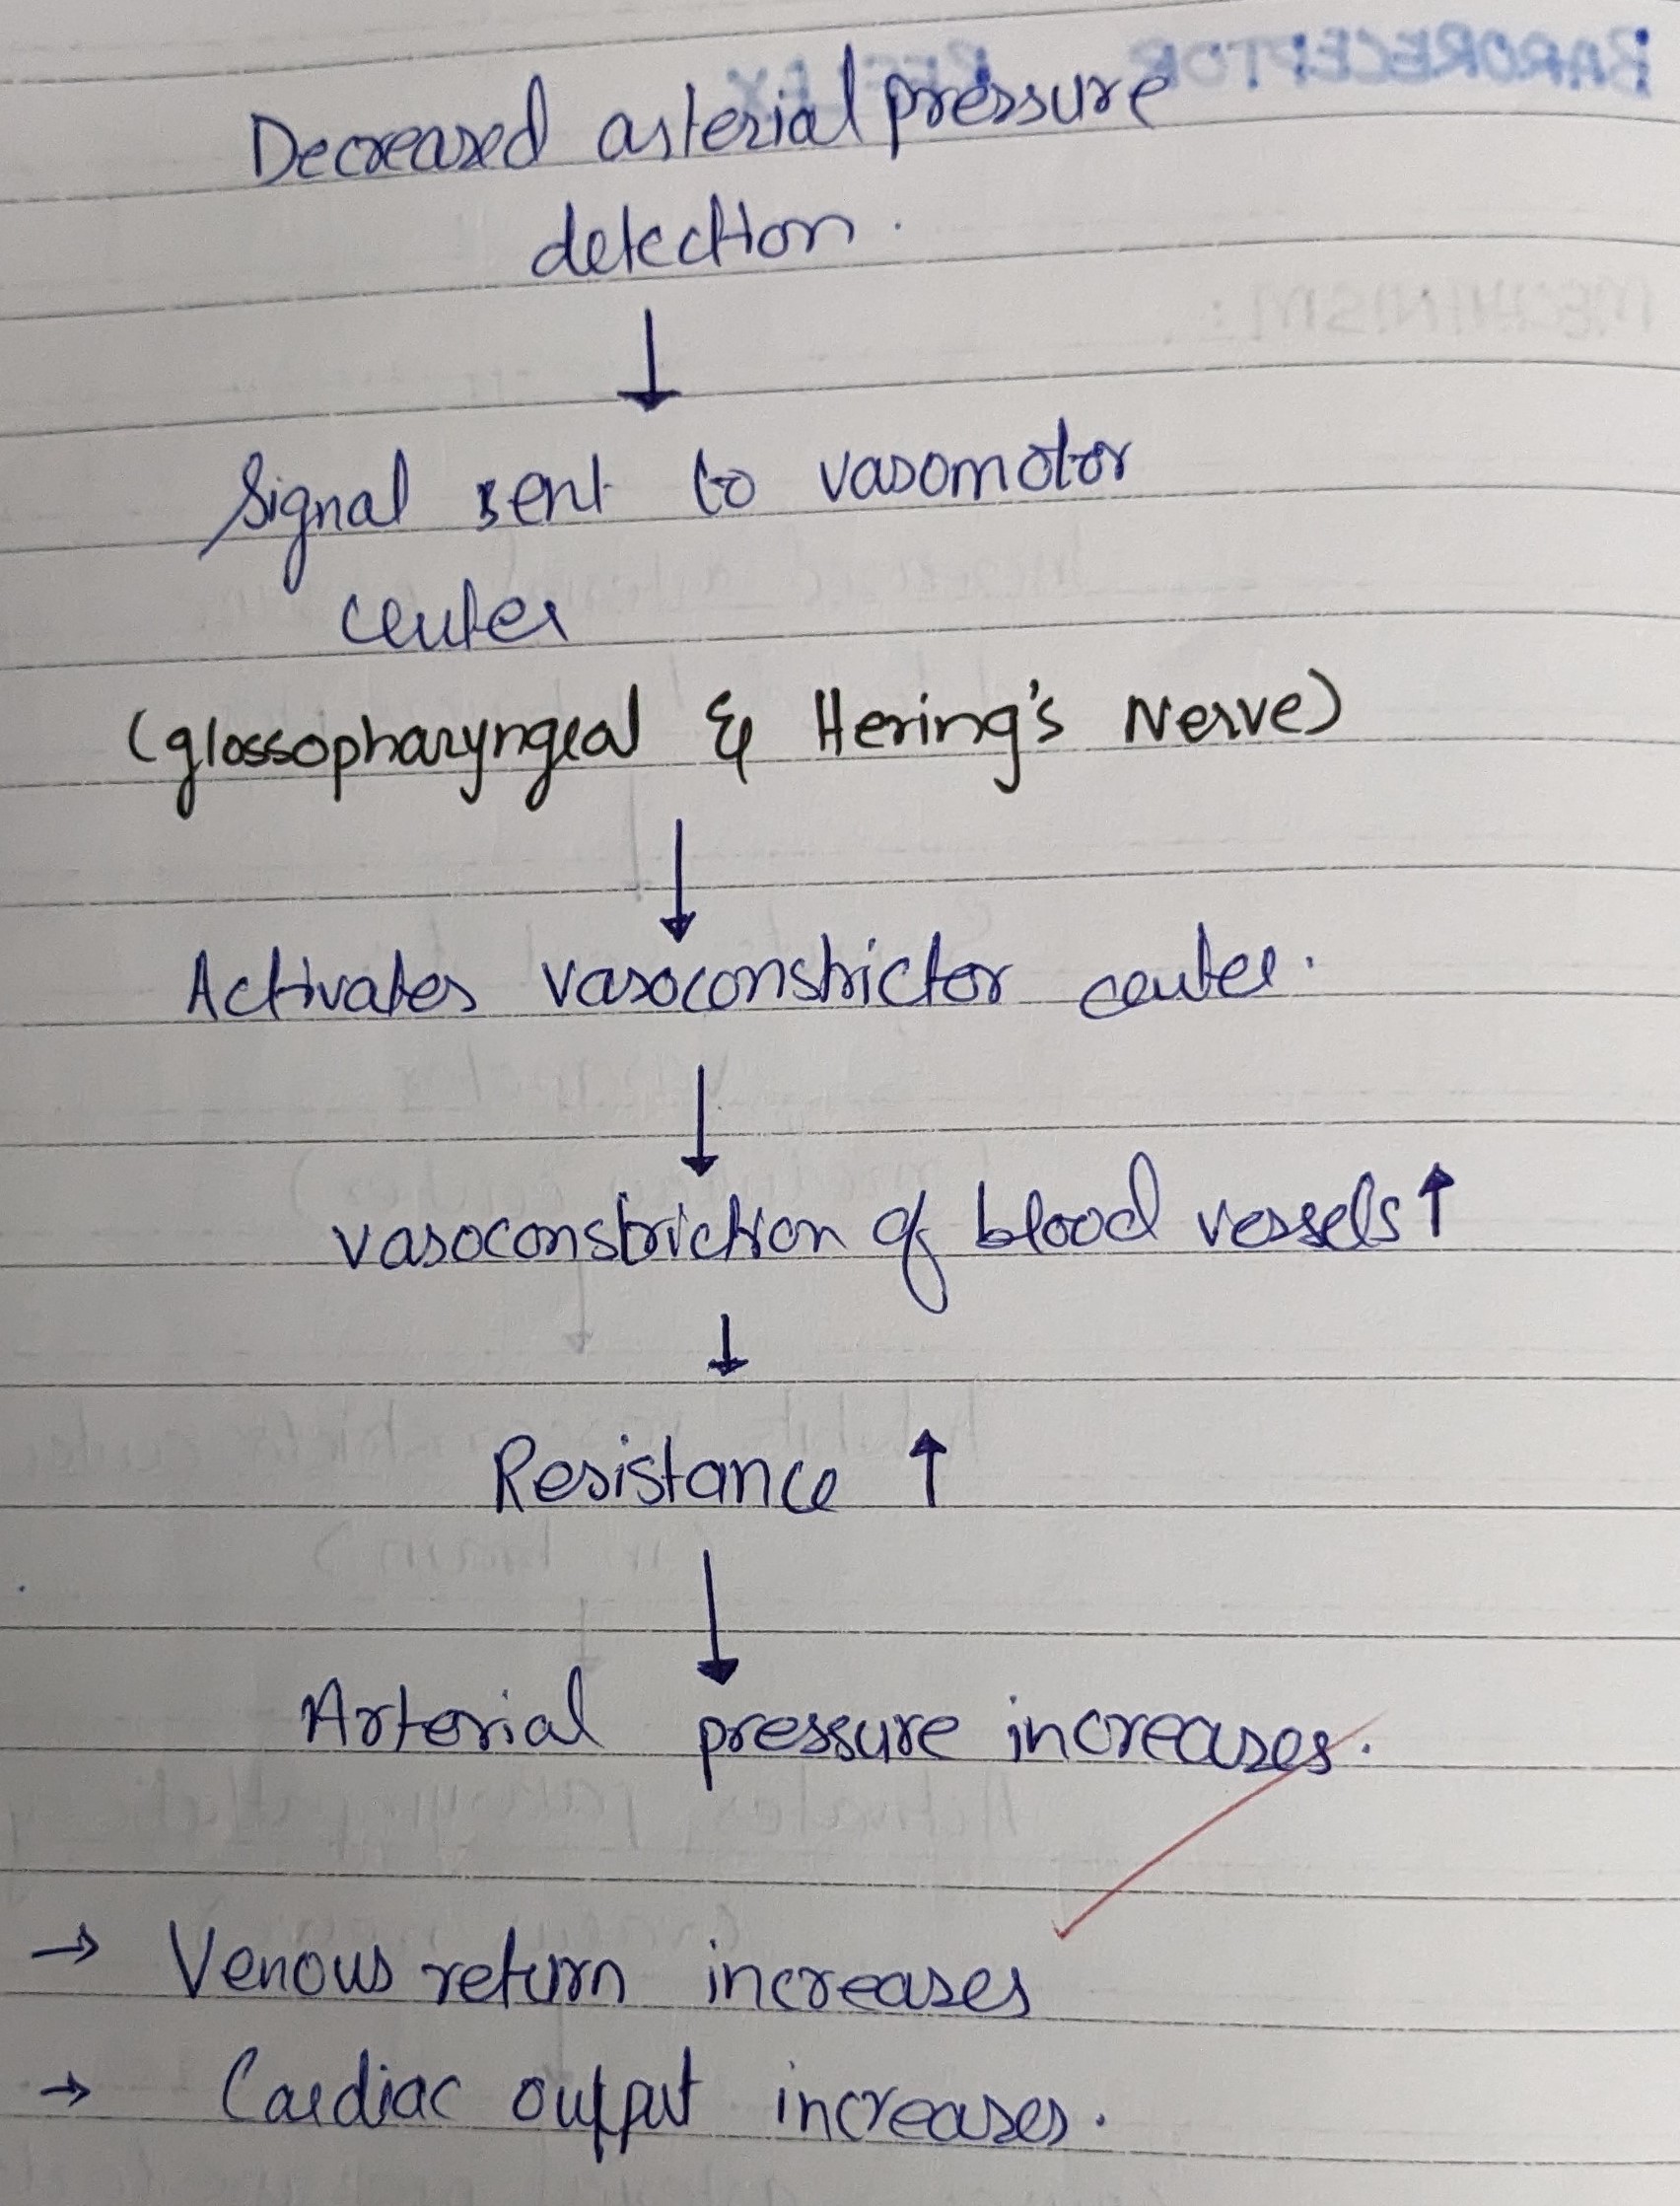 BARORECEPTOR REFLEX
Decreased arterial pressure
detection.
MECHINISM:
↓
Signal sent to vasomotor
center
(glossopharyngeal & Hering's Nerve)
↓
Activates vasoconstrictor center.
↓
vasoconstriction of blood vessels ↑
↓
Resistance ↑
↓
Arterial pressure increases.
→ Venous return increases
→ Cardiac output increases.